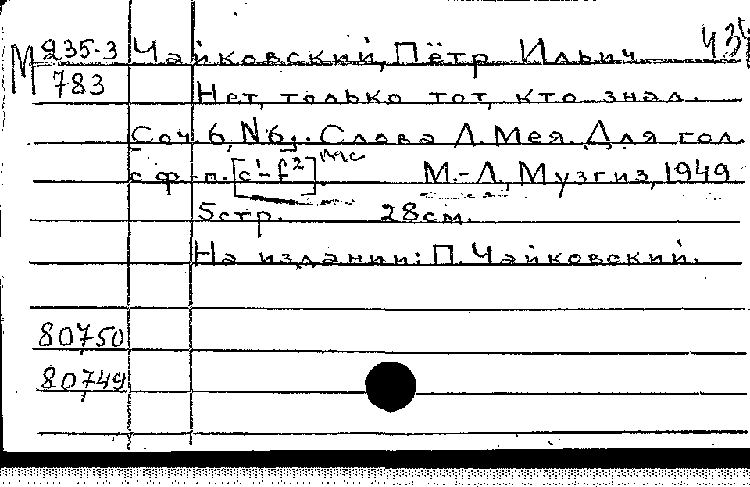 М 235-3 Чайковский, Пётр Ильич 434
783 Нет, только тот, кто знал.
Соч 6, N6. Слова Л. Мея. Для гол.
с ф-п. [c¹-f²] М.-Л., Музгиз, 1949
5стр. 28см.
На издании: П. Чайковский.
80750
80749